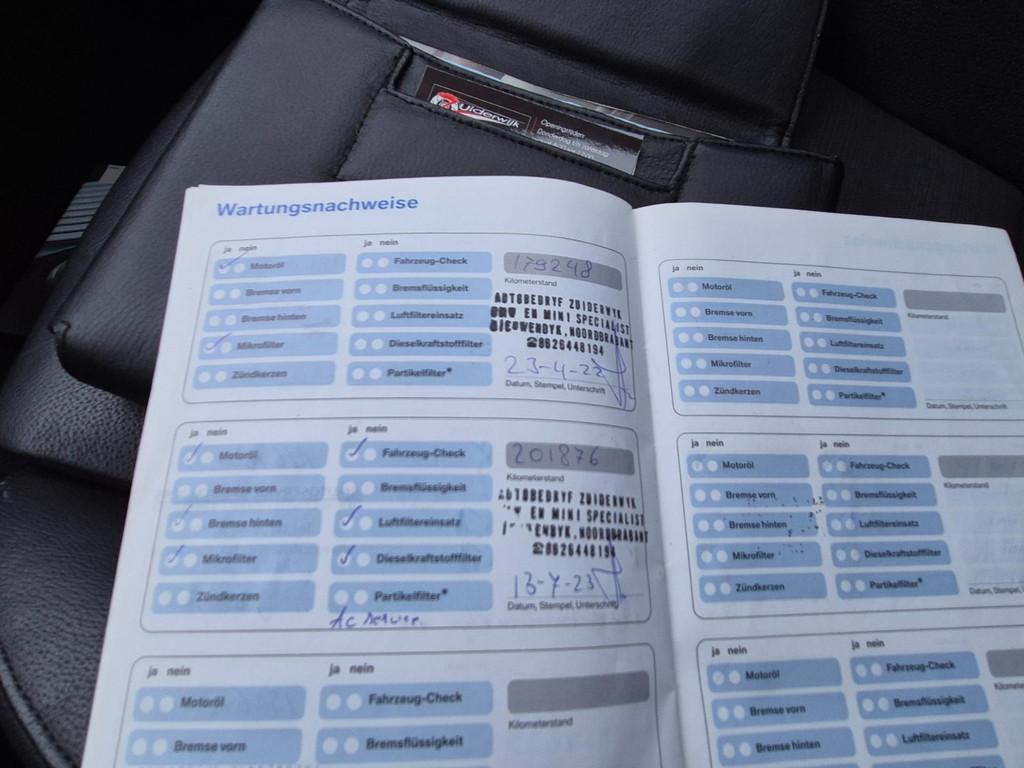 Uiderwijk
Openingstijden
Wartungsnachweise
ja nein
ja nein
Motoröl
Fahrzeug-Check
179248
Kilometerstand
Bremse vorn
Bremsflüssigkeit
AUTOBEDRYF ZUIDERWYK
BMW EN MINI SPECIALIST
Bremse hinten
Luftfiltereinsatz
NIEUWENDYK, NOORDBRABANT
☎0626448194
Mikrofilter
Dieselkraftstofffilter
23-4-22
Zündkerzen
Partikelfilter*
Datum, Stempel, Unterschrift
ja nein
ja nein
Motoröl
Fahrzeug-Check
201876
Kilometerstand
Bremse vorn
Bremsflüssigkeit
AUTOBEDRYF ZUIDERWYK
EN MINI SPECIALIST
Bremse hinten
Luftfiltereinsatz
WENDYK, NOORDBRABANT
☎0626448194
Mikrofilter
Dieselkraftstofffilter
13-7-23
Zündkerzen
Partikelfilter*
Datum, Stempel, Unterschrift
Ac service.
ja nein
ja nein
Motoröl
Fahrzeug-Check
Kilometerstand
Bremse vorn
Bremsflüssigkeit
ja nein
ja nein
Motoröl
Fahrzeug-Check
Kilometerstand
Bremse vorn
Bremsflüssigkeit
Bremse hinten
Luftfiltereinsatz
Mikrofilter
Dieselkraftstofffilter
Zündkerzen
Partikelfilter*
Datum, Stempel, Unterschrift
ja nein
ja nein
Motoröl
Fahrzeug-Check
Kilometerstand
Bremse vorn
Bremsflüssigkeit
Bremse hinten
Luftfiltereinsatz
Mikrofilter
Dieselkraftstofffilter
Zündkerzen
Partikelfilter*
Datum, Stempel,
ja nein
ja nein
Motoröl
Fahrzeug-Check
Bremse vorn
Bremsflüssigkeit
Bremse hinten
Luftfiltereinsatz